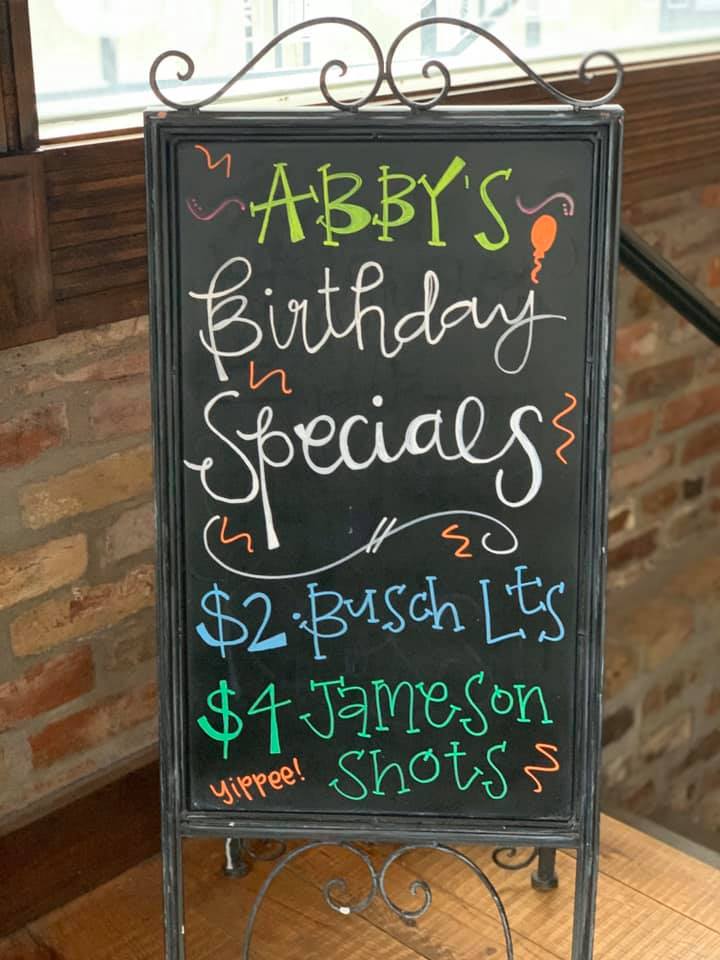 ABBY'S
Birthday
Specials
$2 · Busch Lts
$4 Jameson
shots
yippee!